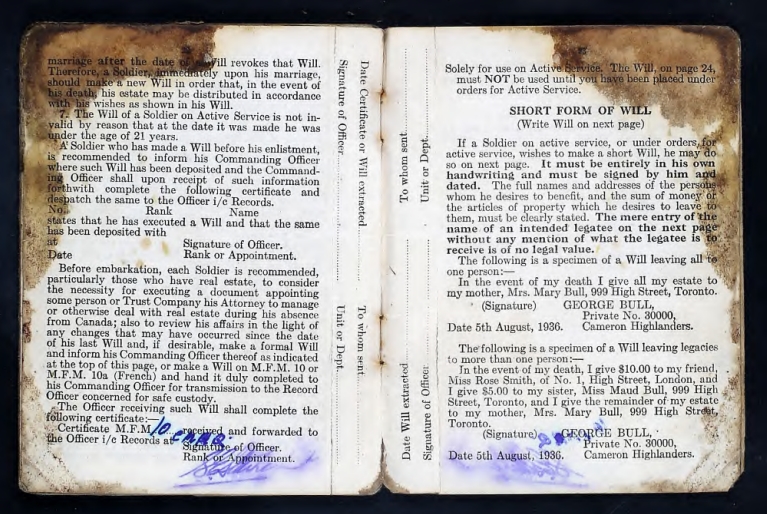 marriage after the date of a Will revokes that Will.
Therefore, a Soldier, immediately upon his marriage,
should make a new Will in order that, in the event of
his death, his estate may be distributed in accordance
with his wishes as shown in his Will.
7. The Will of a Soldier on Active Service is not in-
valid by reason that at the date it was made he was
under the age of 21 years.
A Soldier who has made a Will before his enlistment,
is recommended to inform his Commanding Officer
where such Will has been deposited and the Command-
ing Officer shall upon receipt of such information
forthwith complete the following certificate and
despatch the same to the Officer i/c Records.
No. Rank Name
states that he has executed a Will and that the same
has been deposited with
at Signature of Officer.
Date Rank or Appointment.
Before embarkation, each Soldier is recommended,
particularly those who have real estate, to consider
the necessity for executing a document appointing
some person or Trust Company his Attorney to manage
or otherwise deal with real estate during his absence
from Canada; also to review his affairs in the light of
any changes that may have occurred since the date
of his last Will and, if desirable, make a formal Will
and inform his Commanding Officer thereof as indicated
at the top of this page, or make a Will on M.F.M. 10 or
M.F.M. 10a (French) and hand it duly completed to
his Commanding Officer for transmission to the Record
Officer concerned for safe custody.
The Officer receiving such Will shall complete the
following certificate:—
Certificate M.F.M. 10 received and forwarded to
the Officer i/c Records at
Signature of Officer.
Rank or Appointment.
Date Certificate or Will extracted
Signature of Officer
To whom sent
Unit or Dept.
To whom sent
Unit or Dept.
Date Will extracted
Signature of Officer
Solely for use on Active Service. The Will, on page 24,
must NOT be used until you have been placed under
orders for Active Service.
SHORT FORM OF WILL
(Write Will on next page)
If a Soldier on active service, or under orders for
active service, wishes to make a short Will, he may do
so on next page. It must be entirely in his own
handwriting and must be signed by him and
dated. The full names and addresses of the persons
whom he desires to benefit, and the sum of money or
the articles of property which he desires to leave to
them, must be clearly stated. The mere entry of the
name of an intended legatee on the next page
without any mention of what the legatee is to
receive is of no legal value.
The following is a specimen of a Will leaving all to
one person:—
In the event of my death I give all my estate to
my mother, Mrs. Mary Bull, 999 High Street, Toronto.
(Signature) GEORGE BULL,
Private No. 30000,
Date 5th August, 1936. Cameron Highlanders.
The following is a specimen of a Will leaving legacies
to more than one person:—
In the event of my death, I give $10.00 to my friend,
Miss Rose Smith, of No. 1, High Street, London, and
I give $5.00 to my sister, Miss Maud Bull, 999 High
Street, Toronto, and I give the remainder of my estate
to my mother, Mrs. Mary Bull, 999 High Street,
Toronto.
(Signature) GEORGE BULL,
Private No. 30000,
Date 5th August, 1936. Cameron Highlanders.